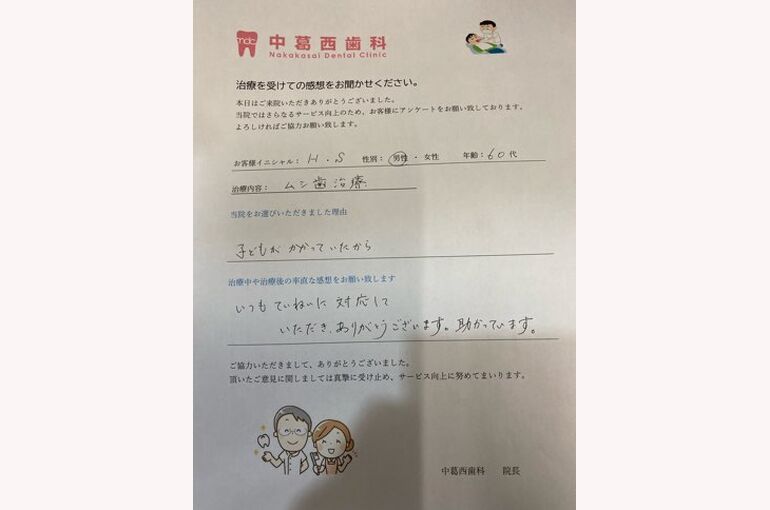 mdc 中葛西歯科
Nakakasai Dental Clinic
治療を受けての感想をお聞かせください。
本日はご来院いただきありがとうございました。
当院ではさらなるサービス向上のため、お客様にアンケートをお願い致しております。
よろしければご協力お願い致します。
お客様イニシャル: H.S 性別: 男性・女性 年齢:60代
治療内容: ムシ歯治療
当院をお選びいただきました理由
子どもが かかっていたから
治療中や治療後の率直な感想をお願い致します
いつも ていねいに 対応して
いただき、ありがとうございます。助かっています。
ご協力いただきまして、ありがとうございました。
頂いたご意見に関しましては真摯に受け止め、サービス向上に努めてまいります。
中葛西歯科 院長